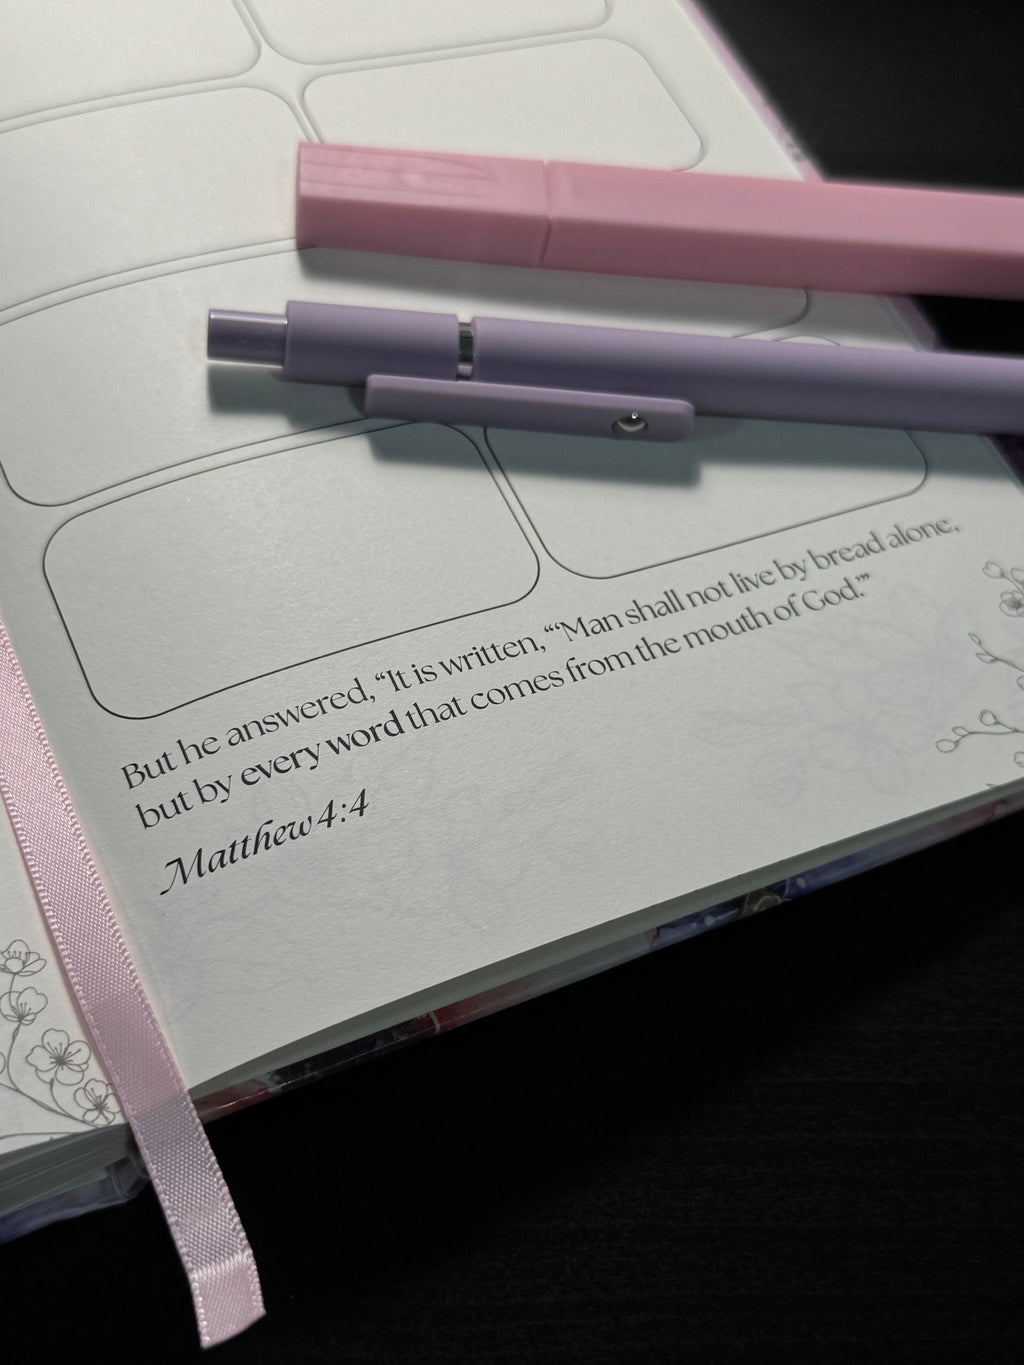 But he answered, “It is written, “‘Man shall not live by bread alone,
but by every word that comes from the mouth of God.’”
Matthew 4:4